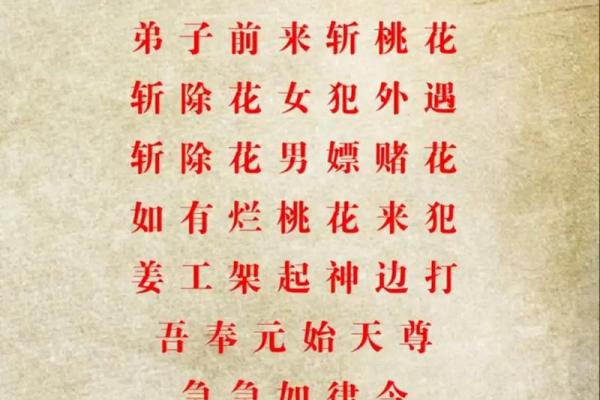 弟子前来斩桃花
斩除花女犯外遇
斩除花男嫖赌花
如有烂桃花来犯
姜工架起神边打
吾奉元始天尊
急急如律令